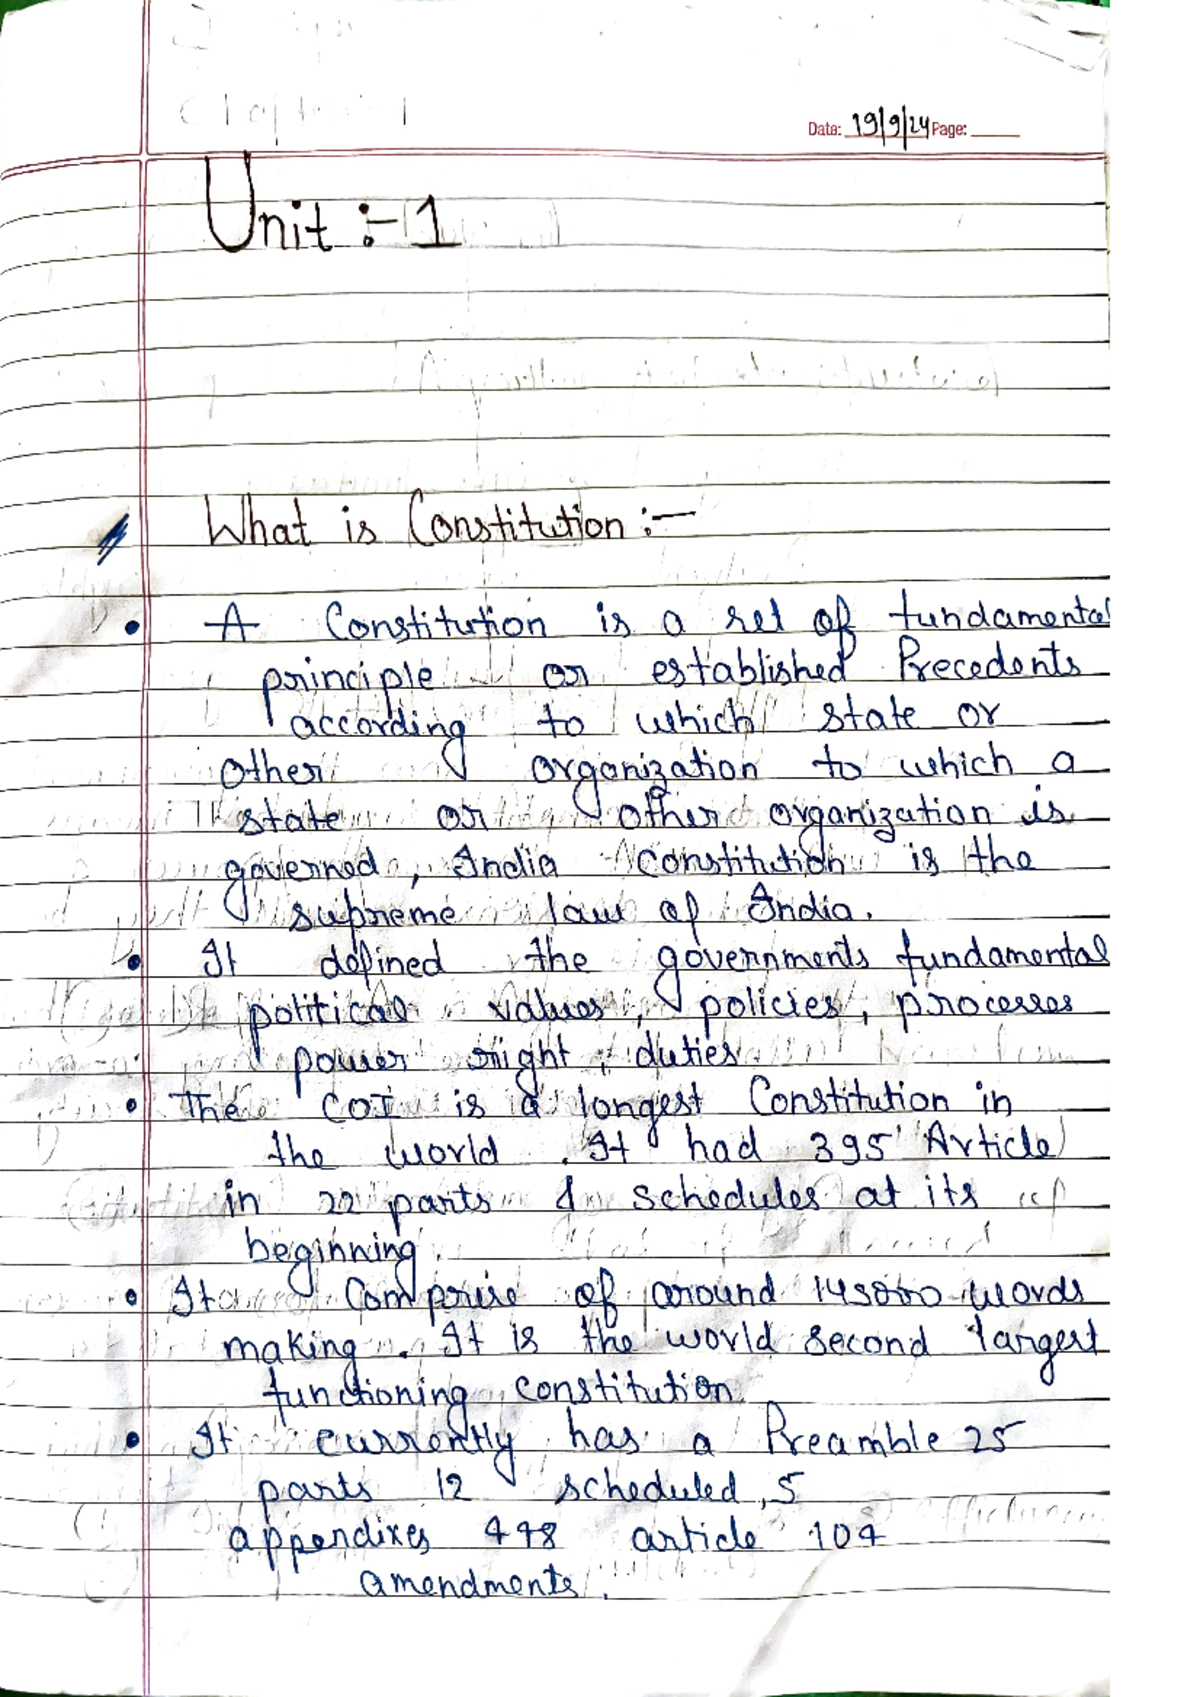 Date: 19/9/24 Page:
Unit :- 1
What is Constitution :-
• A Constitution is a set of fundamental
principle or established Precedents
according to which state or
other organization to which a
state or other organization is
governed, India Constitution is the
supreme law of India.
• It defined the governments fundamental
political values, policies, processes
power right, duties.
• The COI is a longest Constitution in
the world. It had 395 Article
in 22 parts & schedules at its
beginning.
• It Comprise of around 145000 words
making. It is the world second largest
functioning constitution.
• It currently has a Preamble 25
parts 12 scheduled, 5
appendixes 448 article 104
amendments.